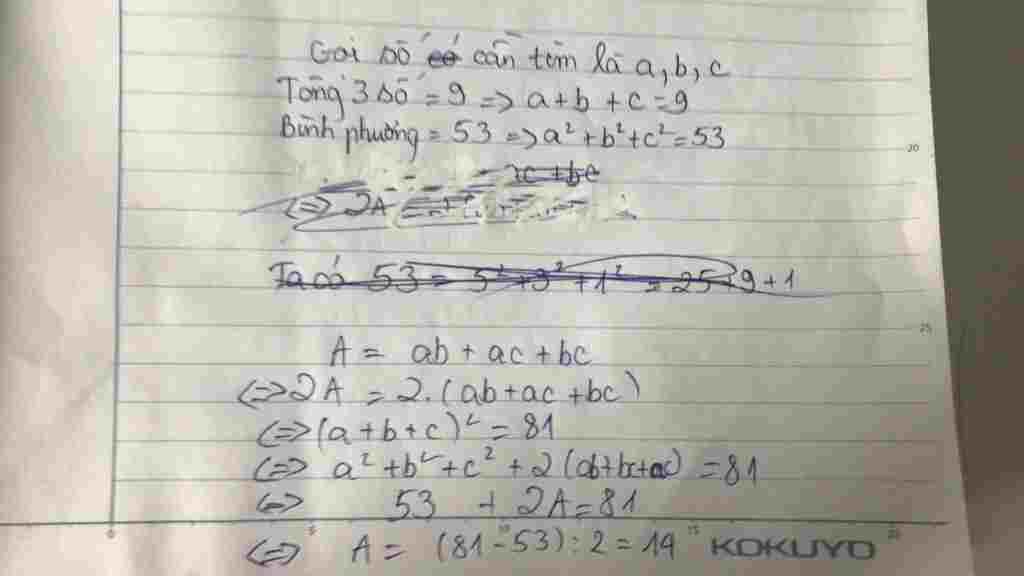 Gọi số cần tìm là a, b, c
Tổng 3 số = 9 => a + b + c = 9
Bình phương = 53 => a² + b² + c² = 53
2c + bc
<=> 2A =
Ta có 53 = 5² + 3² + 1² = 25 + 9 + 1
A = ab + ac + bc
<=> 2A = 2.(ab + ac + bc)
<=> (a + b + c)² = 81
<=> a² + b² + c² + 2(ab + bc + ac) = 81
<=> 53 + 2A = 81
<=> A = (81 - 53) : 2 = 14
KOKUYO
20
25
0
5
10
15
20